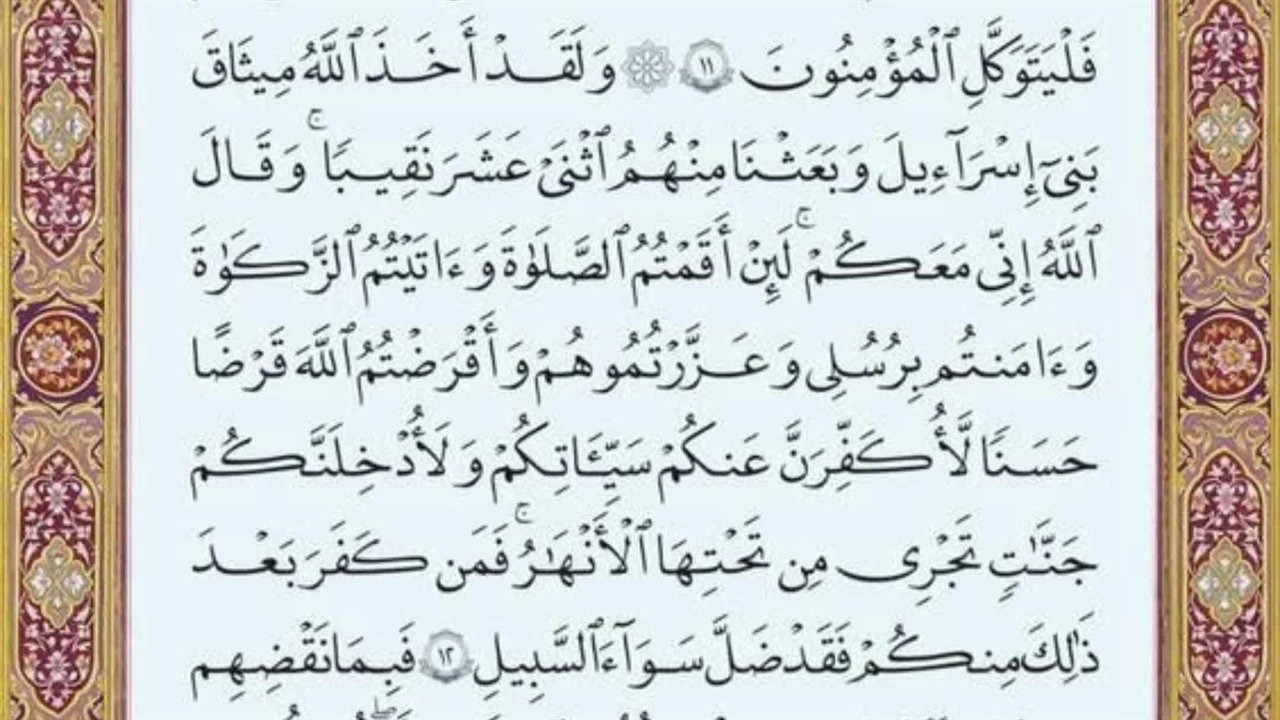 فَلْيَتَوَكَّلِ ٱلْمُؤْمِنُونَ ١١ ۞ وَلَقَدْ أَخَذَ ٱللَّهُ مِيثَاقَ
بَنِىٓ إِسْرَآءِيلَ وَبَعَثْنَا مِنْهُمُ ٱثْنَىْ عَشَرَ نَقِيبًا ۖ وَقَالَ
ٱللَّهُ إِنِّى مَعَكُمْ ۖ لَئِنْ أَقَمْتُمُ ٱلصَّلَوٰةَ وَءَاتَيْتُمُ ٱلزَّكَوٰةَ
وَءَامَنتُم بِرُسُلِى وَعَزَّرْتُمُوهُمْ وَأَقْرَضْتُمُ ٱللَّهَ قَرْضًا
حَسَنًا لَّأُكَفِّرَنَّ عَنكُمْ سَيِّـَٔاتِكُمْ وَلَأُدْخِلَنَّكُمْ
جَنَّـٰتٍ تَجْرِى مِن تَحْتِهَا ٱلْأَنْهَـٰرُ ۚ فَمَن كَفَرَ بَعْدَ
ذَٰلِكَ مِنكُمْ فَقَدْ ضَلَّ سَوَآءَ ٱلسَّبِيلِ ١٢ فَبِمَا نَقْضِهِم